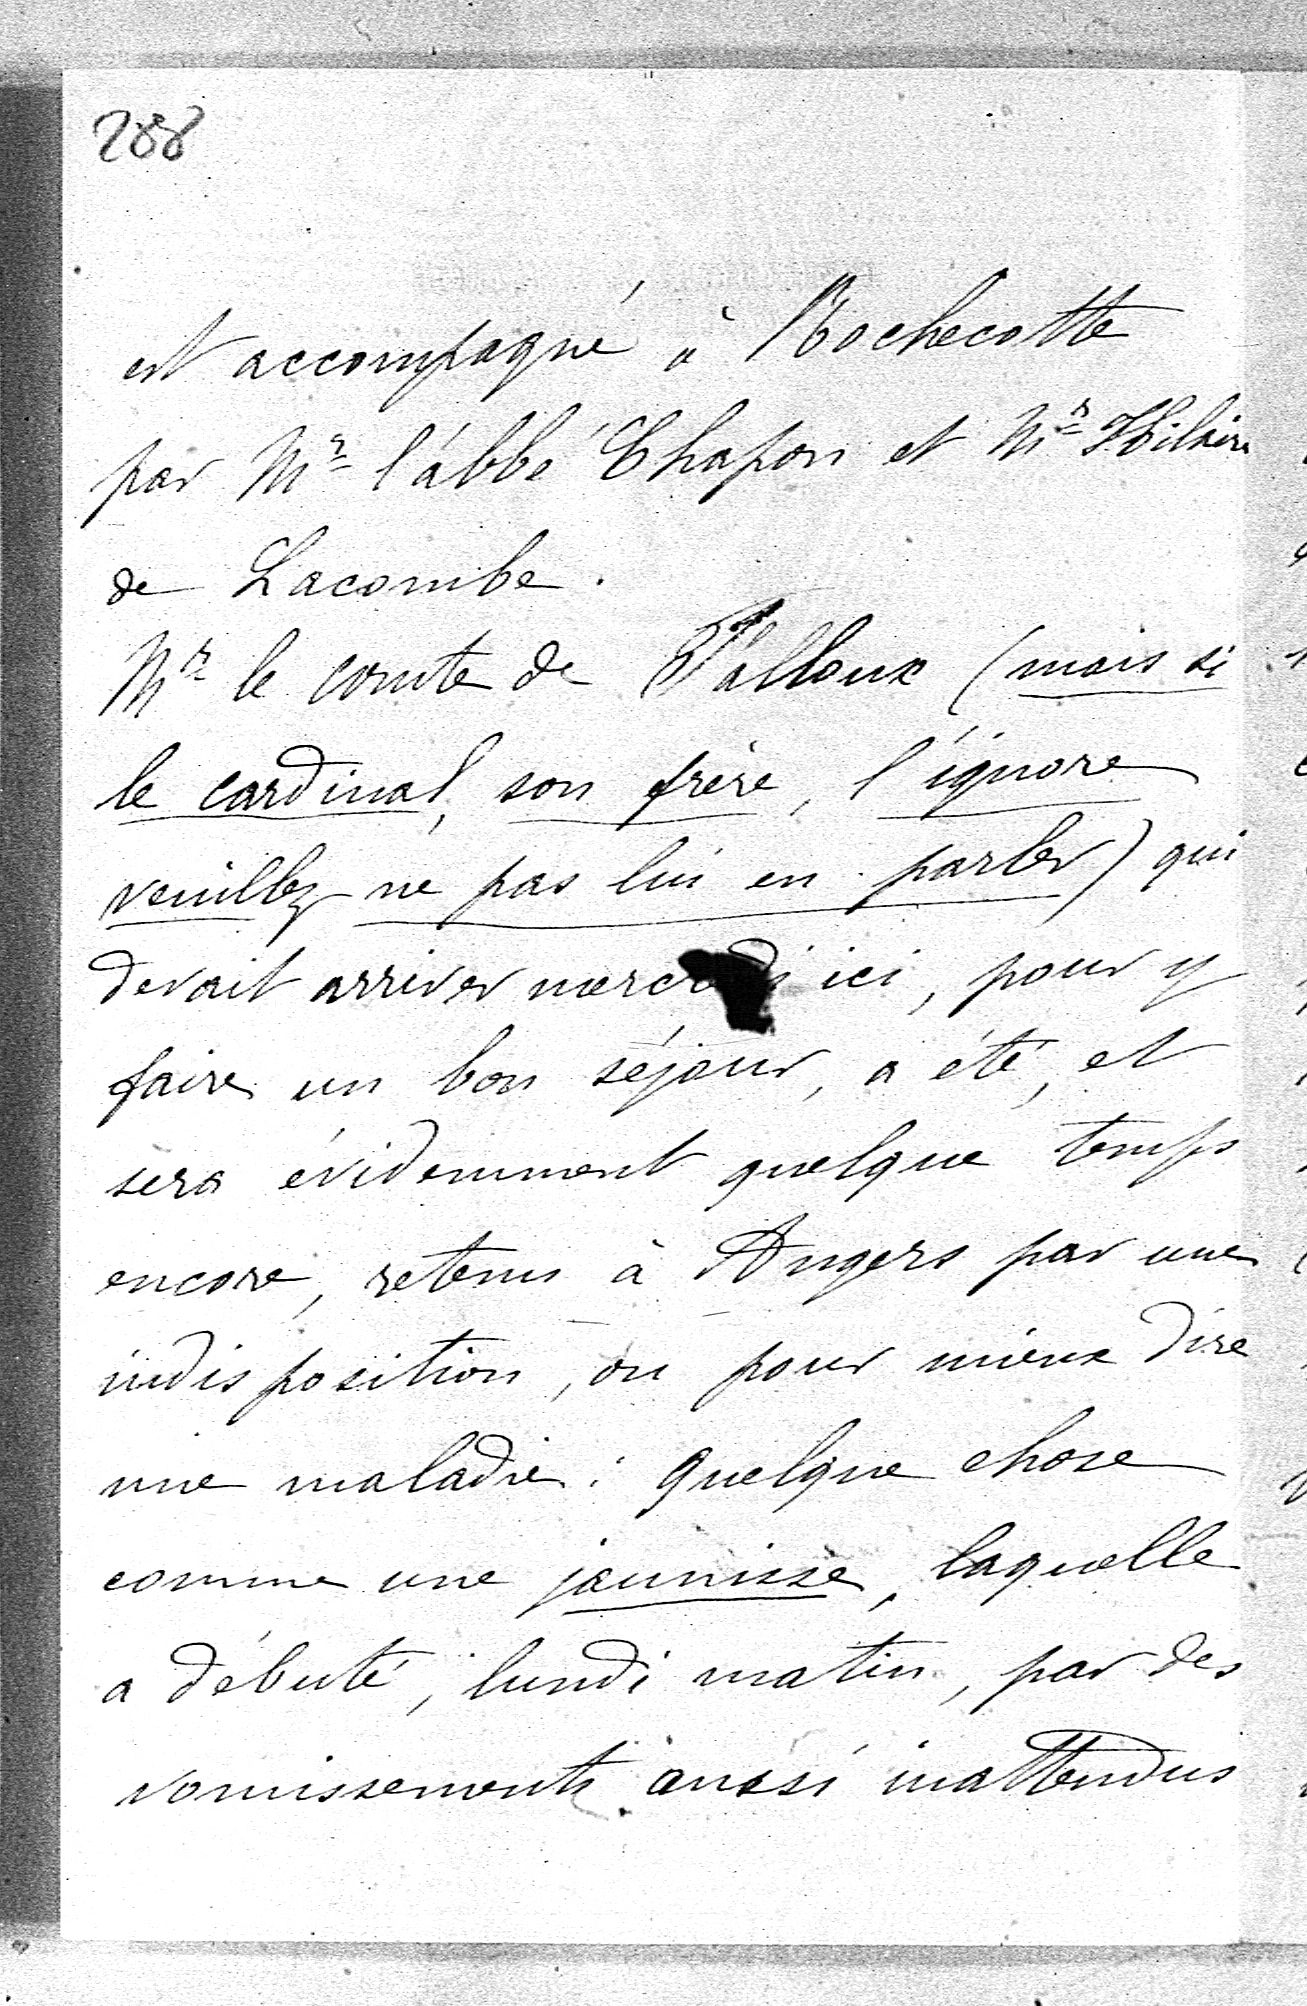 288
est accompagné à Rochecotte
par Mr l'abbé Chapon et Mr Hilaire
de Lacombe.
Mr le comte de Falloux (mais si
le cardinal, son frère, l'ignore
veuillez ne pas lui en parler) qui
devait arriver mercredi ici, pour y
faire un bon séjour, a été, et
sera évidemment quelque temps
encore, retenu à Angers par une
indisposition, ou pour mieux dire
une maladie : quelque chose
comme une jaunisse, laquelle
a débuté, lundi matin, par des
vomissements aussi inattendus